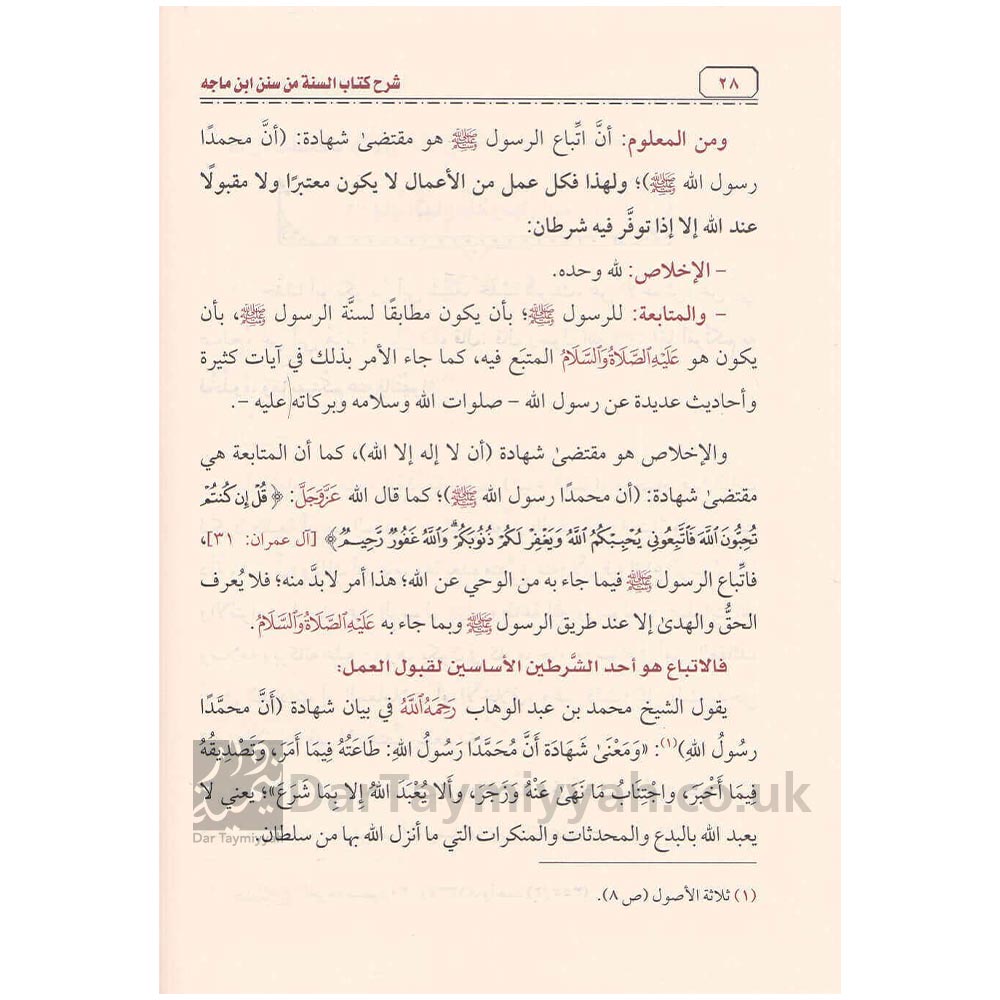 ٢٨
شرح كتاب السنة من سنن ابن ماجه
ومن المعلوم: أنَّ اتِّباع الرسول ﷺ هو مقتضىٰ شهادة: (أنَّ محمدًا
رسول الله ﷺ)؛ ولهذا فكل عمل من الأعمال لا يكون معتبرًا ولا مقبولًا
عند الله إلا إذا توفَّر فيه شرطان:
– الإخلاص: لله وحده.
– والمتابعة: للرسول ﷺ؛ بأن يكون مطابقًا لسنَّة الرسول ﷺ، بأن
يكون هو عَلَيْهِ الصَّلَاةُ وَالسَّلَامُ المتبَع فيه، كما جاء الأمر بذلك في آيات كثيرة
وأحاديث عديدة عن رسول الله – صلوات الله وسلامه وبركاته عليه –.
والإخلاص هو مقتضىٰ شهادة (أن لا إله إلا الله)، كما أن المتابعة هي
مقتضىٰ شهادة: (أن محمدًا رسول الله ﷺ)؛ كما قال الله عَزَّوَجَلَّ: ﴿قُلْ إِن كُنتُمْ
تُحِبُّونَ اللَّهَ فَاتَّبِعُونِي يُحْبِبْكُمُ اللَّهُ وَيَغْفِرْ لَكُمْ ذُنُوبَكُمْ ۗ وَاللَّهُ غَفُورٌ رَّحِيمٌ﴾ [آل عمران: ٣١]،
فاتِّباع الرسول ﷺ فيما جاء به من الوحي عن الله؛ هذا أمر لابدَّ منه؛ فلا يُعرف
الحقُّ والهدىٰ إلا عند طريق الرسول ﷺ وبما جاء به عَلَيْهِ الصَّلَاةُ وَالسَّلَامُ.
فالاتباع هو أحد الشَّرطين الأساسين لقبول العمل:
يقول الشيخ محمد بن عبد الوهاب رَحِمَهُ اللَّهُ في بيان شهادة (أَنَّ مُحَمَّدًا
رسُولُ اللهِ)(١): «وَمَعْنَىٰ شَهَادَة أَنَّ مُحَمَّدًا رَسُولُ اللهِ: طَاعَتُهُ فِيمَا أَمَرَ، وَتَصْدِيقُهُ
فِيمَا أَخْبَرَ، واجْتِنَابُ مَا نَهَىٰ عَنْهُ وَزَجَرَ، وَأَلا يُعْبَدَ اللهُ إِلا بِمَا شَرَعَ»؛ يعني لا
يعبد الله بالبدع والمحدثات والمنكرات التي ما أنزل الله بها من سلطان.
(١) ثلاثة الأصول (ص ٨).
DarTaymiyyah.co.uk
Dar Taymiyyah